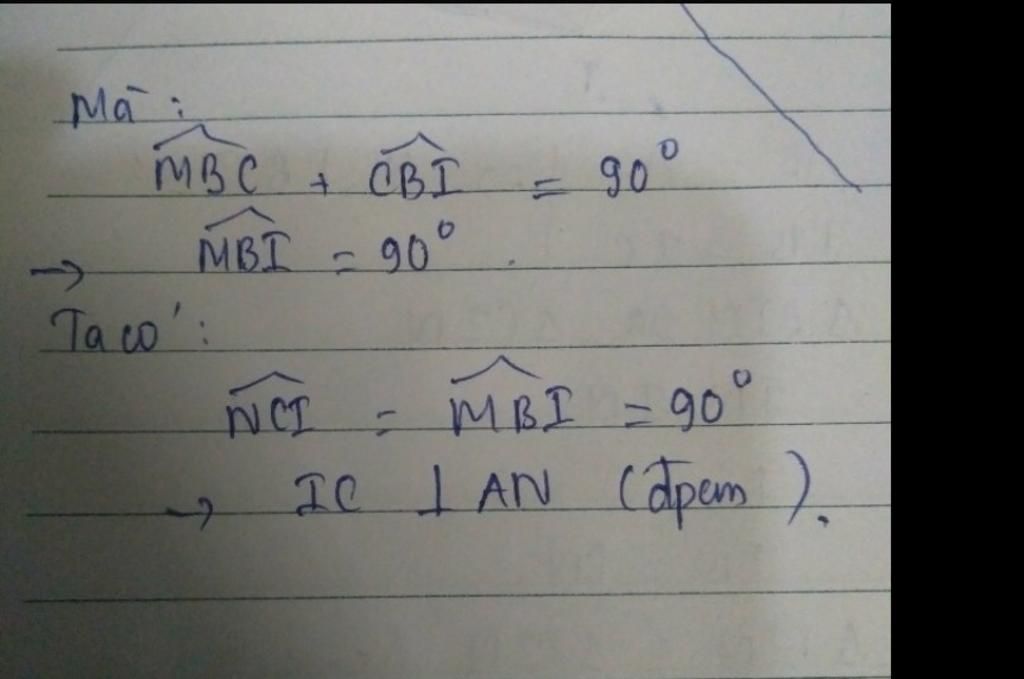 Mà :
∠MBC + ∠CBI = 90°
→ ∠MBI = 90° .
Ta có :
∠NCI = ∠MBI = 90°
→ IC ⊥ AN (đpcm).